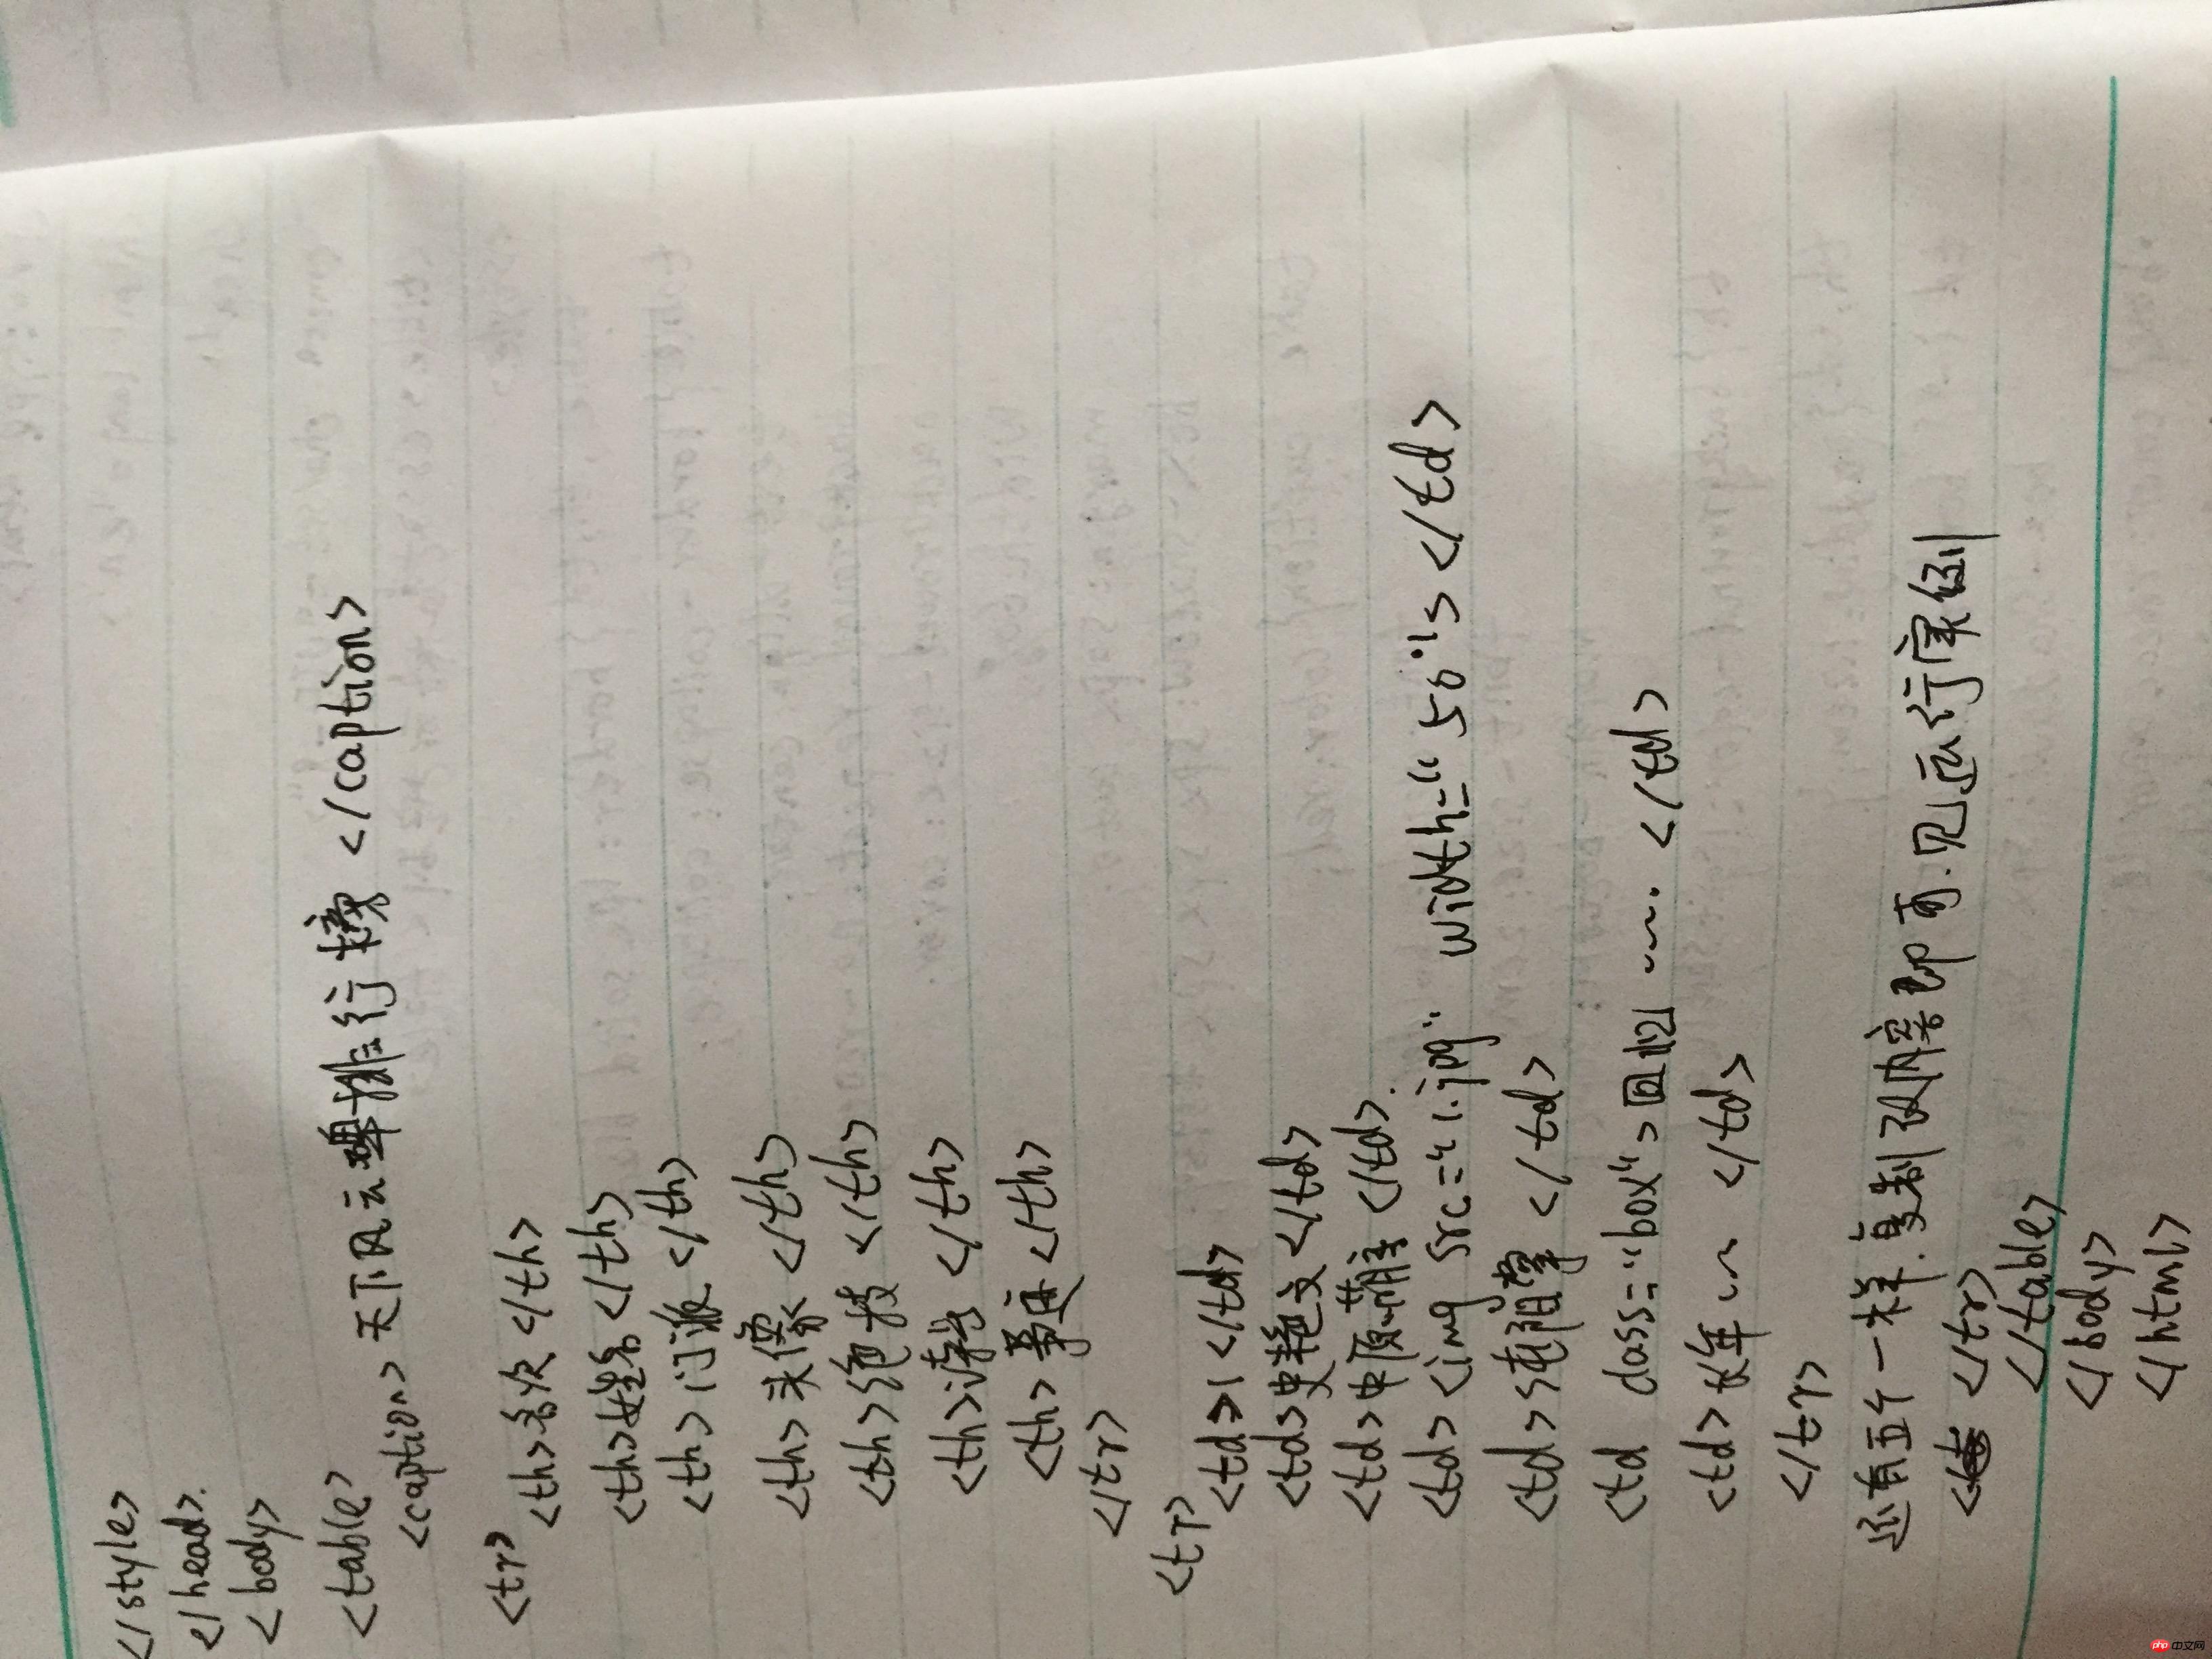 </style>
</head>
<body>
<table>
<caption>天下风云榜排行榜</caption>
<tr>
<th>名次</th>
<th>姓名</th>
<th>门派</th>
<th>头像</th>
<th>绝技</th>
<th>讲学</th>
<th>年度</th>
</tr>
<tr>
<td>1</td>
<td>史艳文</td>
<td>中原盟主</td>
<td><img src="1.jpg" width="50"></td>
<td>纯阳掌</td>
<td class="box">回忆....</td>
<td>长年~~</td>
</tr>
还有五个一样.复制改内容即可.见运行案例
</tr>
</table>
</body>
</html>
php中文网